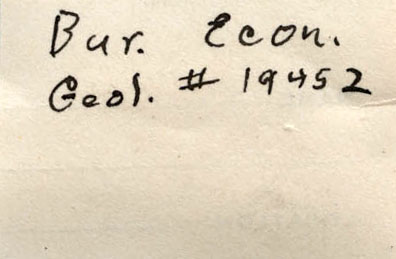 Bur. Econ.
Geol. # 19452